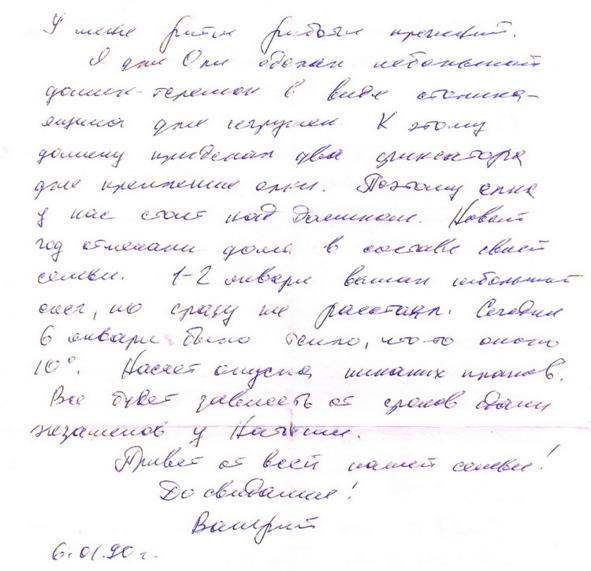 У меня ритм работы прежний.
Я для Оли сделал небольшой
домик-теремок в виде столика-
ящика для игрушек. К этому
домику приделал два фиксатора
для крепления елки. Поэтому елка
у нас стоит над домиком. Новый
год отмечали дома в составе своей
семьи. 1-2 января выпал небольшой
снег, но сразу же расстаял. Сегодня
6 января было тепло, что-то около
10°. Насчет отпуска никаких планов.
Все будет зависеть от сроков сдачи
экзаменов у Наташи.
Привет от всей нашей семьи!
До свидания!
Валерий
6.01.90 г.